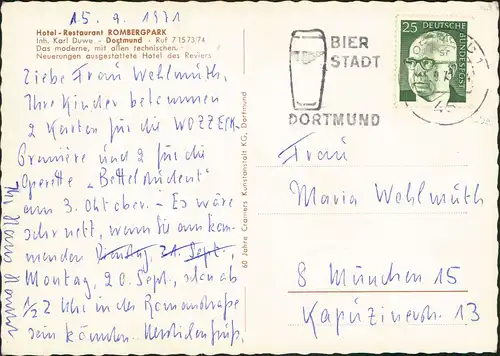 15. 9. 1971
Hotel-Restaurant ROMBERGPARK
Inh. Karl Duwe - Dortmund - Ruf 7 15 73/74
Das moderne, mit allen technischen
Neuerungen ausgestattete Hotel des Reviers
Liebe Frau Wehlmüth,
Ihre Kinder bekommen
2 Karten für die WOZZECK-
Première und 2 für die
Operette „Bettelstudent"
am 3. Oktober. - Es wäre
sehr nett, wenn Sie am kom-
menden Dienstag, 21. Sept.,
Montag, 20. Sept., schon ab
1/2 2 Uhr in der Romanstraße
sein könnten. Herzlichen Gruß,
Ihr Hans
60 Jahre Cramers Kunstanstalt KG, Dortmund
BIER
STADT
DORTMUND
25 DEUTSCHE
BUNDESPOST
Frau
Maria Wehlmüth
8 München 15
Kapuzinerstr. 13